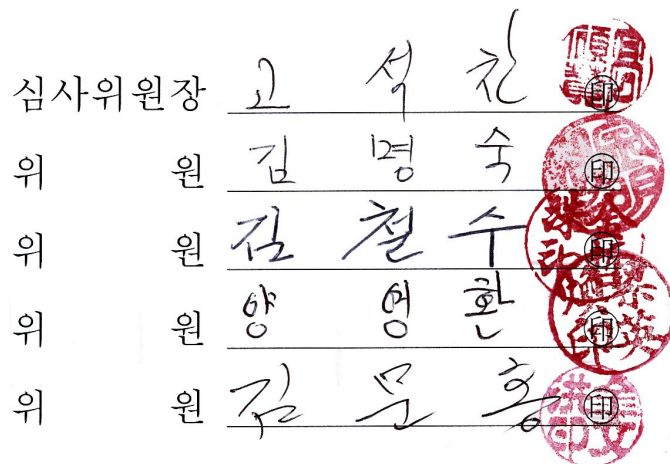 심사위원장 고 석 찬 印
위 원 김 명 숙 印
위 원 김 철 수 印
위 원 양 영 환 印
위 원 김 문 홍 印